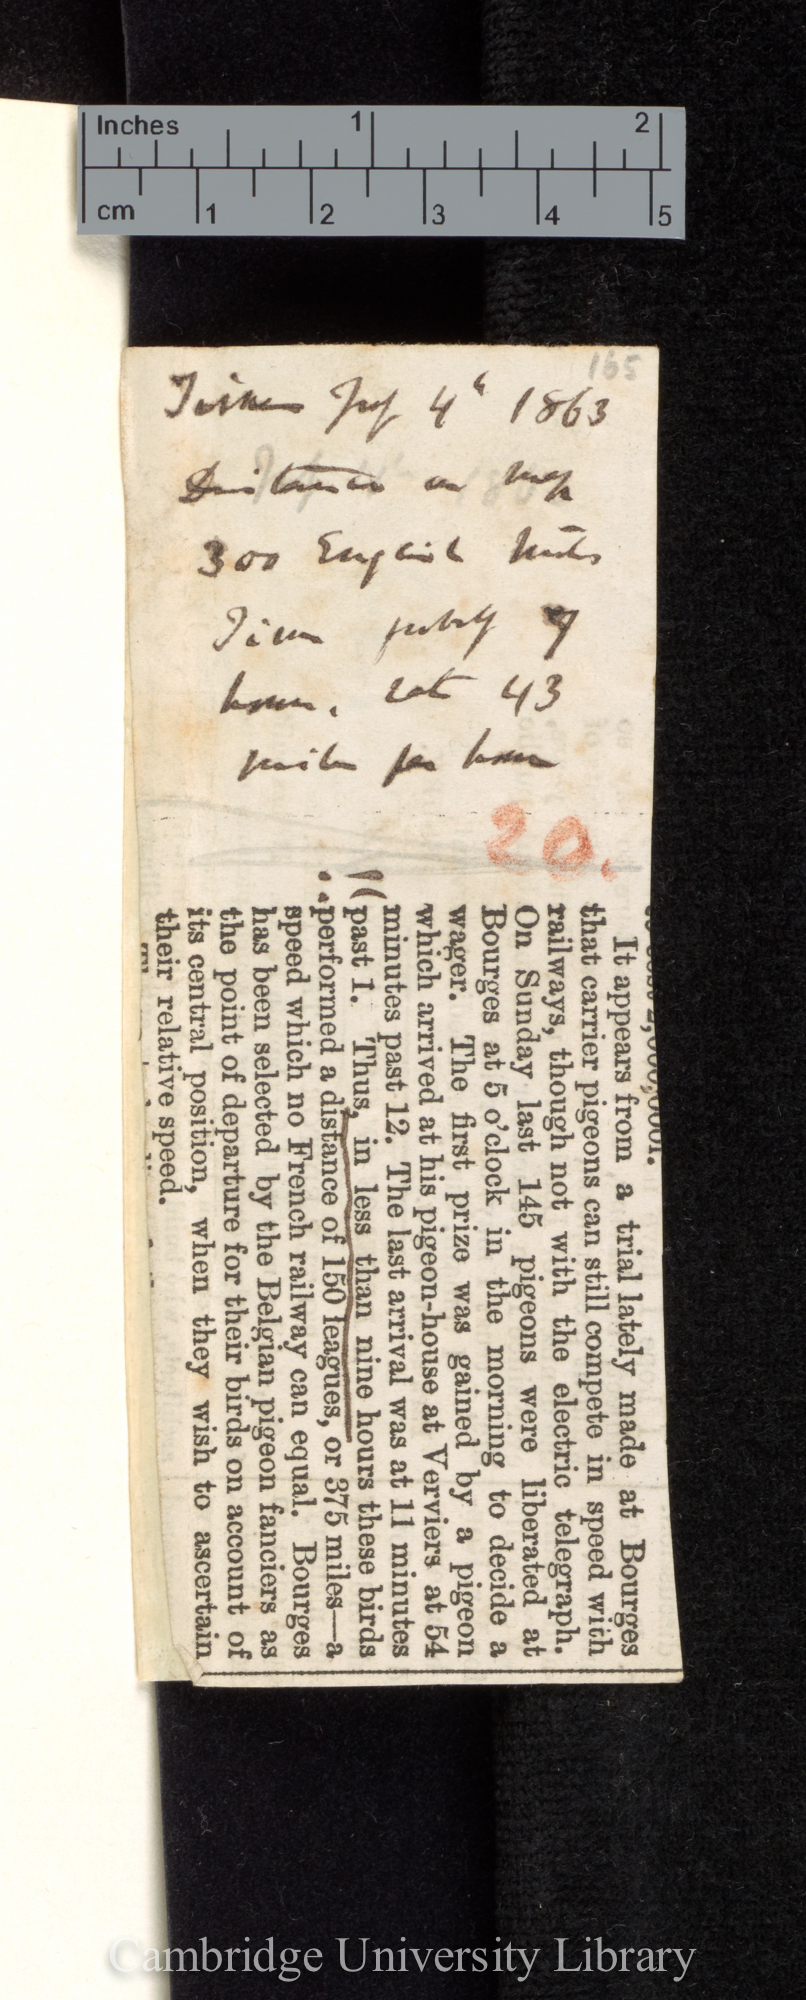 Inches 1 2
cm 1 2 3 4 5
165
Times July 4th 1863
Distance on map
300 English miles
Time probly 7
hours. rate 43
miles per hour
20.
It appears from a trial lately made at Bourges
that carrier pigeons can still compete in speed with
railways, though not with the electric telegraph.
On Sunday last 145 pigeons were liberated at
Bourges at 5 o'clock in the morning to decide a
wager. The first prize was gained by a pigeon
which arrived at his pigeon-house at Verviers at 54
minutes past 12. The last arrival was at 11 minutes
past 1. Thus, in less than nine hours these birds
performed a distance of 150 leagues, or 375 miles—a
speed which no French railway can equal. Bourges
has been selected by the Belgian pigeon fanciers as
the point of departure for their birds on account of
its central position, when they wish to ascertain
their relative speed.
Cambridge University Library